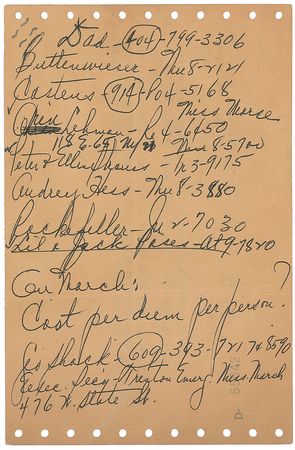 Dad - 404-799-3306
Buttenwieser - Mu 8-2121
Castens 914-PO4-5168
Miss Morse
Lehman - Re 4-6450
118 E. 65 NY 21 Mu 8-5700
Peter & Ellen Straus - Tr 3-9175
Audrey Hess - Mu 8-3880
Rockefeller - Ju 2-7030
Lil & Jack Poses - At 9-7820
On March:
Cost per diem per person?
Ed Shack - 609-393-7217 & 8590
Exec. Sec'y - Trenton Emerg. Miss. March
476 W. State St.